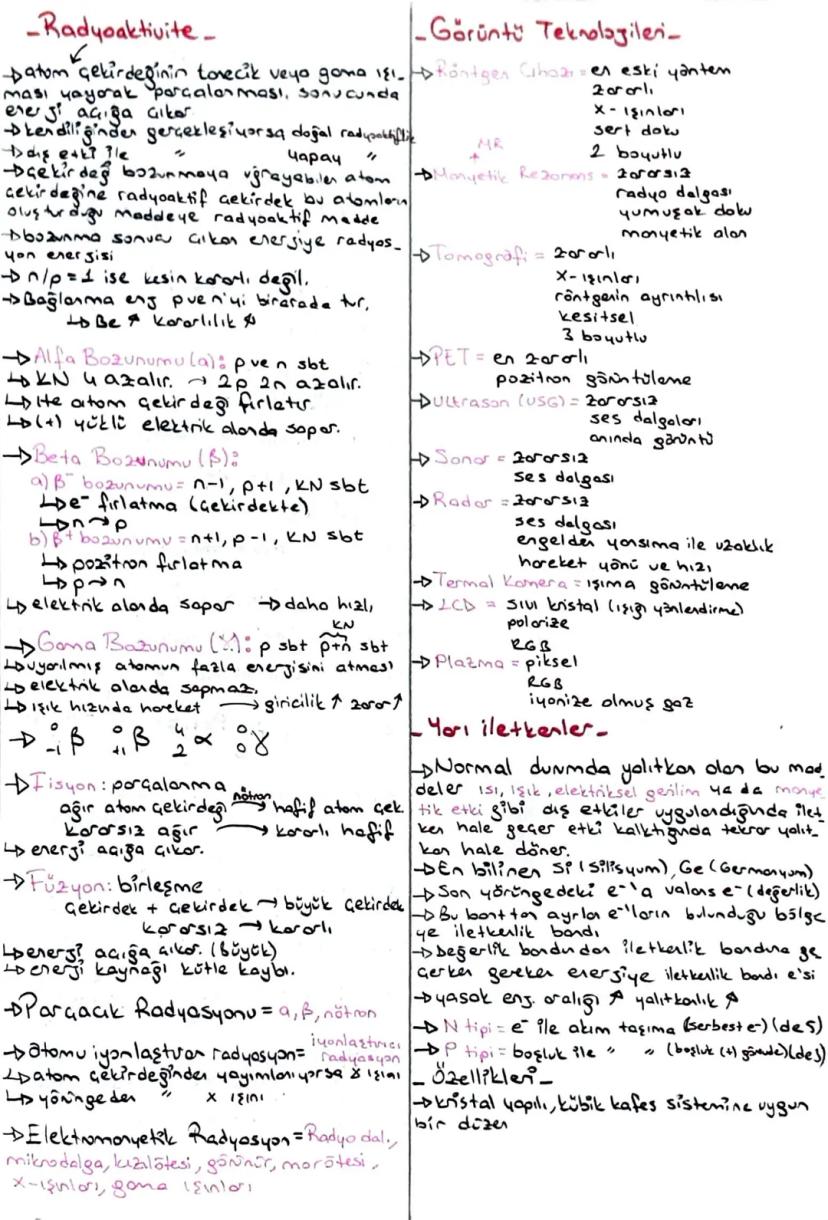 -Radyoaktivite-
→atom çekirdeğinin tanecik veya gama ışı-
ması yayarak parçalanması, sonucunda
enerji açığa çıkar.
→kendiliğinden gerçekleşiyorsa doğal radyoaktiflik
→dış etki ile " yapay "
→Çekirdeğ bozunmaya uğrayabilen atom
çekirdeğine radyoaktif çekirdek bu atomların
oluşturduğu maddeye radyoaktif madde
→bozunma sonucu çıkan enerjiye radyas-
yon enerjisi
→n/p=1 ise kesin kararlı değil.
→Bağlanma enj p ve n'yi birarada tut.
↳Be↑ kararlılık↑
→Alfa Bozunumu(α): p ve n sbt
↳KN 4 azalır. → 2p 2n azalır.
↳He atom çekirdeği fırlatır.
↳(+) yüklü elektrik alanda sapar.
→Beta Bozunumu(β):
a)β⁻ bozunumu= n-1, p+1, KN sbt
↳e⁻ fırlatma (çekirdekte)
↳n→p
b)β⁺ bozunumu=n+1, p-1, KN sbt
↳pozitron fırlatma
↳p→n
↳elektrik alanda sapar →daha hızlı
KN
→Gama Bozunumu(γ): p sbt p+n sbt
↳uyarılmış atomun fazla enerjisini atması
↳elektrik alanda sapmaz.
↳ışık hızında hareket → giricilik↑ zarar↑
→ ⁰₋₁β ⁰₊₁β ⁴₂α ⁰₀γ
→Fisyon: parçalanma
ağır atom çekirdeği nötron→ hafif atom çek.
kararsız ağır → kararlı hafif
↳enerji açığa çıkar.
→Füzyon: birleşme
çekirdek + çekirdek → büyük çekirdek
kararsız → kararlı
↳enerji açığa çıkar. (büyük)
↳enerji kaynağı kütle kaybı.
→Parçacık Radyasyonu= α, β, nötron
→atomu iyonlaştıran radyasyon= iyonlaştırıcı radyasyon
↳atom çekirdeğinden yayımlanıyorsa γ ışını
↳yörüngeden " x ışını
→Elektromanyetik Radyasyon=Radyo dal.,
mikrodalga, kızılötesi, görünür, morötesi,
x-ışınları, gama ışınları
-Görüntü Teknolojileri-
→Röntgen Cihazı= en eski yöntem
zararlı
x-ışınları
sert doku
2 boyutlu
MR
→Manyetik Rezonans= zararsız
radyo dalgası
yumuşak doku
manyetik alan
→Tomografi= zararlı
x-ışınları
röntgenin ayrıntılısı
kesitsel
3 boyutlu
→PET= en zararlı
pozitron görüntüleme
→Ultrason (USG)= zararsız
ses dalgaları
anında görüntü
→Sonar= zararsız
ses dalgası
→Radar= zararsız
ses dalgası
engelden yansıma ile uzaklık
hareket yönü ve hızı
→Termal Kamera= ışıma görüntüleme
→LCD= sıvı kristal (ışığı yönlendirme)
polarize
RGB
→Plazma= piksel
RGB
iyonize olmuş gaz
-Yarı iletkenler-
→Normal durumda yalıtkan olan bu mad
deler ısı, ışık, elektriksel gerilim ya da manye
tik etki gibi dış etkiler uygulandığında ilet
ken hale geçer etki kalktığında tekrar yalıt
kan hale döner.
→En bilinen Si (Silisyum), Ge (Germanyum)
→Son yörüngedeki e⁻'a valans e⁻ (değerlik)
→Bu banttan ayrılan e⁻'ların bulunduğu bölge
ye iletkenlik bandı
→Değerlik bandından iletkenlik bandına ge
çerken gereken enerjiye iletkenlik bandı e'si
→yasak enj. aralığı↑ yalıtkanlık↑
→N tipi= e⁻ ile akım taşıma (serbest e⁻) (de5)
→P tipi= boşluk ile " " (boşluk (+) görevde)(de3)
-Özellikleri-
→kristal yapılı, kübik kafes sistemine uygun
bir düzen